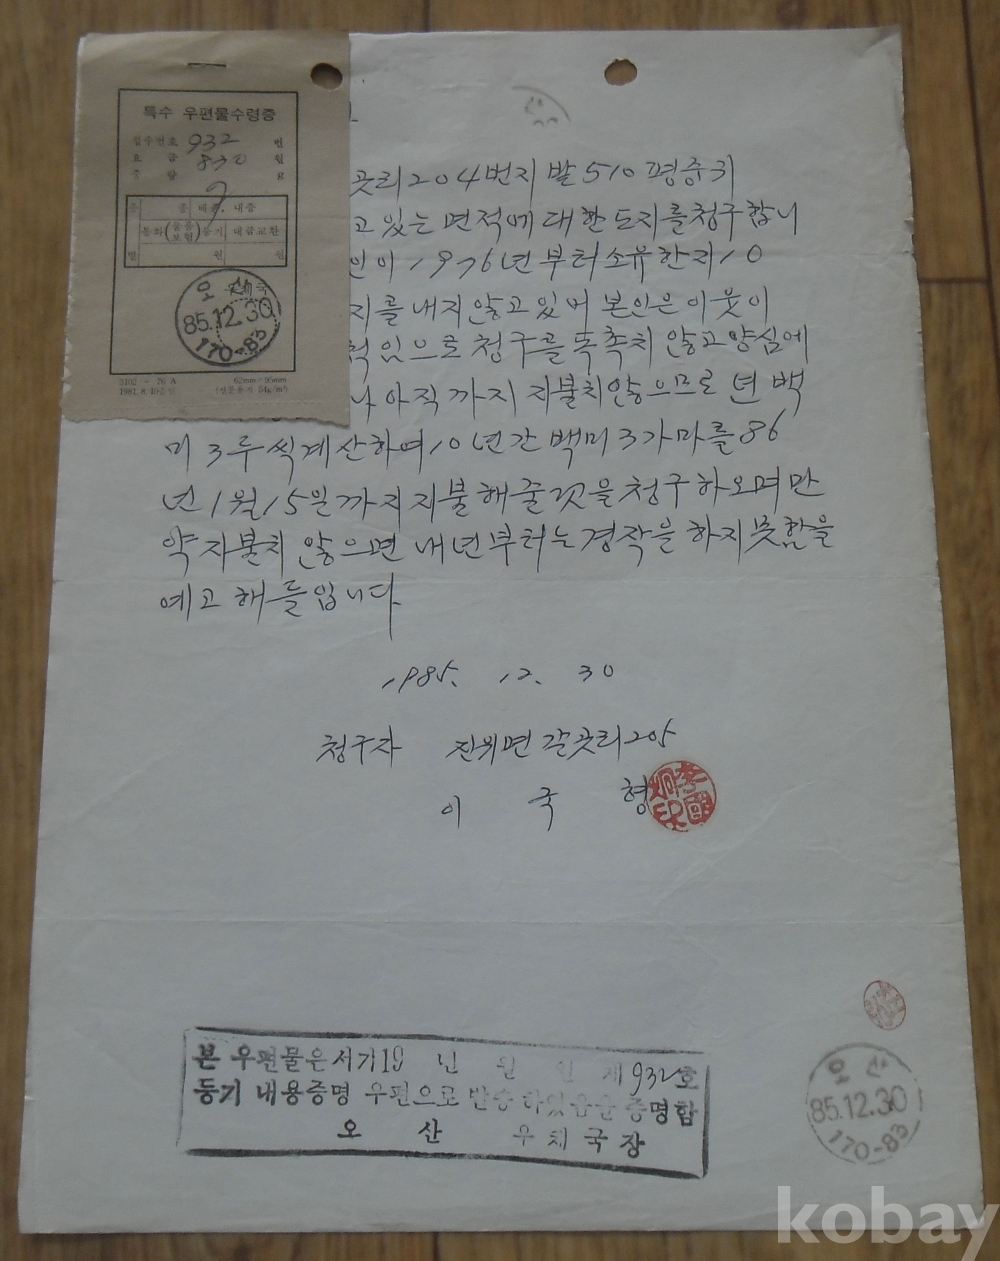 특수 우편물수령증
접수번호 932 번
요금 830 원
중량
종 배증. 내증
통화(물품보험)등기 대금교환
별 원 원
오산 우체국
85.12.30
170-83
3102 - 26A
62mm×95mm
곶리204번지 밭510평중귀
고 있는 면적에 대한 도지를청구합니
인이 1976년부터소유한지10
지를 내지않고있어 본인은 이웃이
척있으로 청구골독촉치 않고양심에
나 아직까지 지불치않으므로 년 백
미 3두씩계산하여10년간 백미3가마를86
년1월15일까지지불해줄것을청구하오며만
약지불치 않으면 내년부터는경작을 하지못함을
예고해 들입니다
1985. 12. 30
청구자 진위면갈곶리205
이 국 형
본 우편물은서기19 년 월 일 제932호
등기 내용증명 우편으로 발송하였음을 증명함
오산 우체국장
오산
85.12.30
170-83
kobay